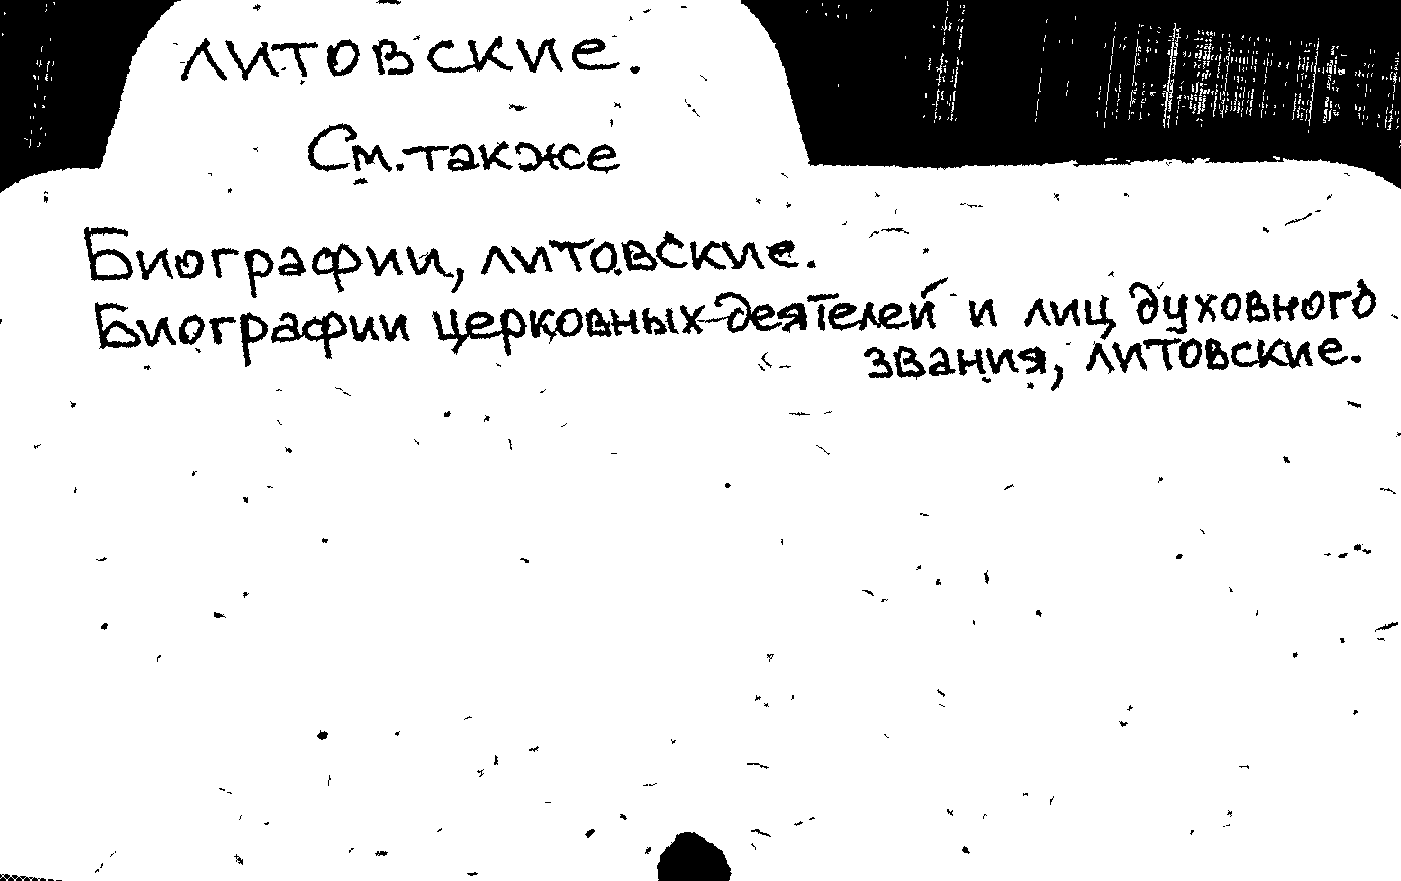 литовские.
См. также
Биографии, литовские.
Биографии церковных деятелей и лиц духовного
звания, литовские.